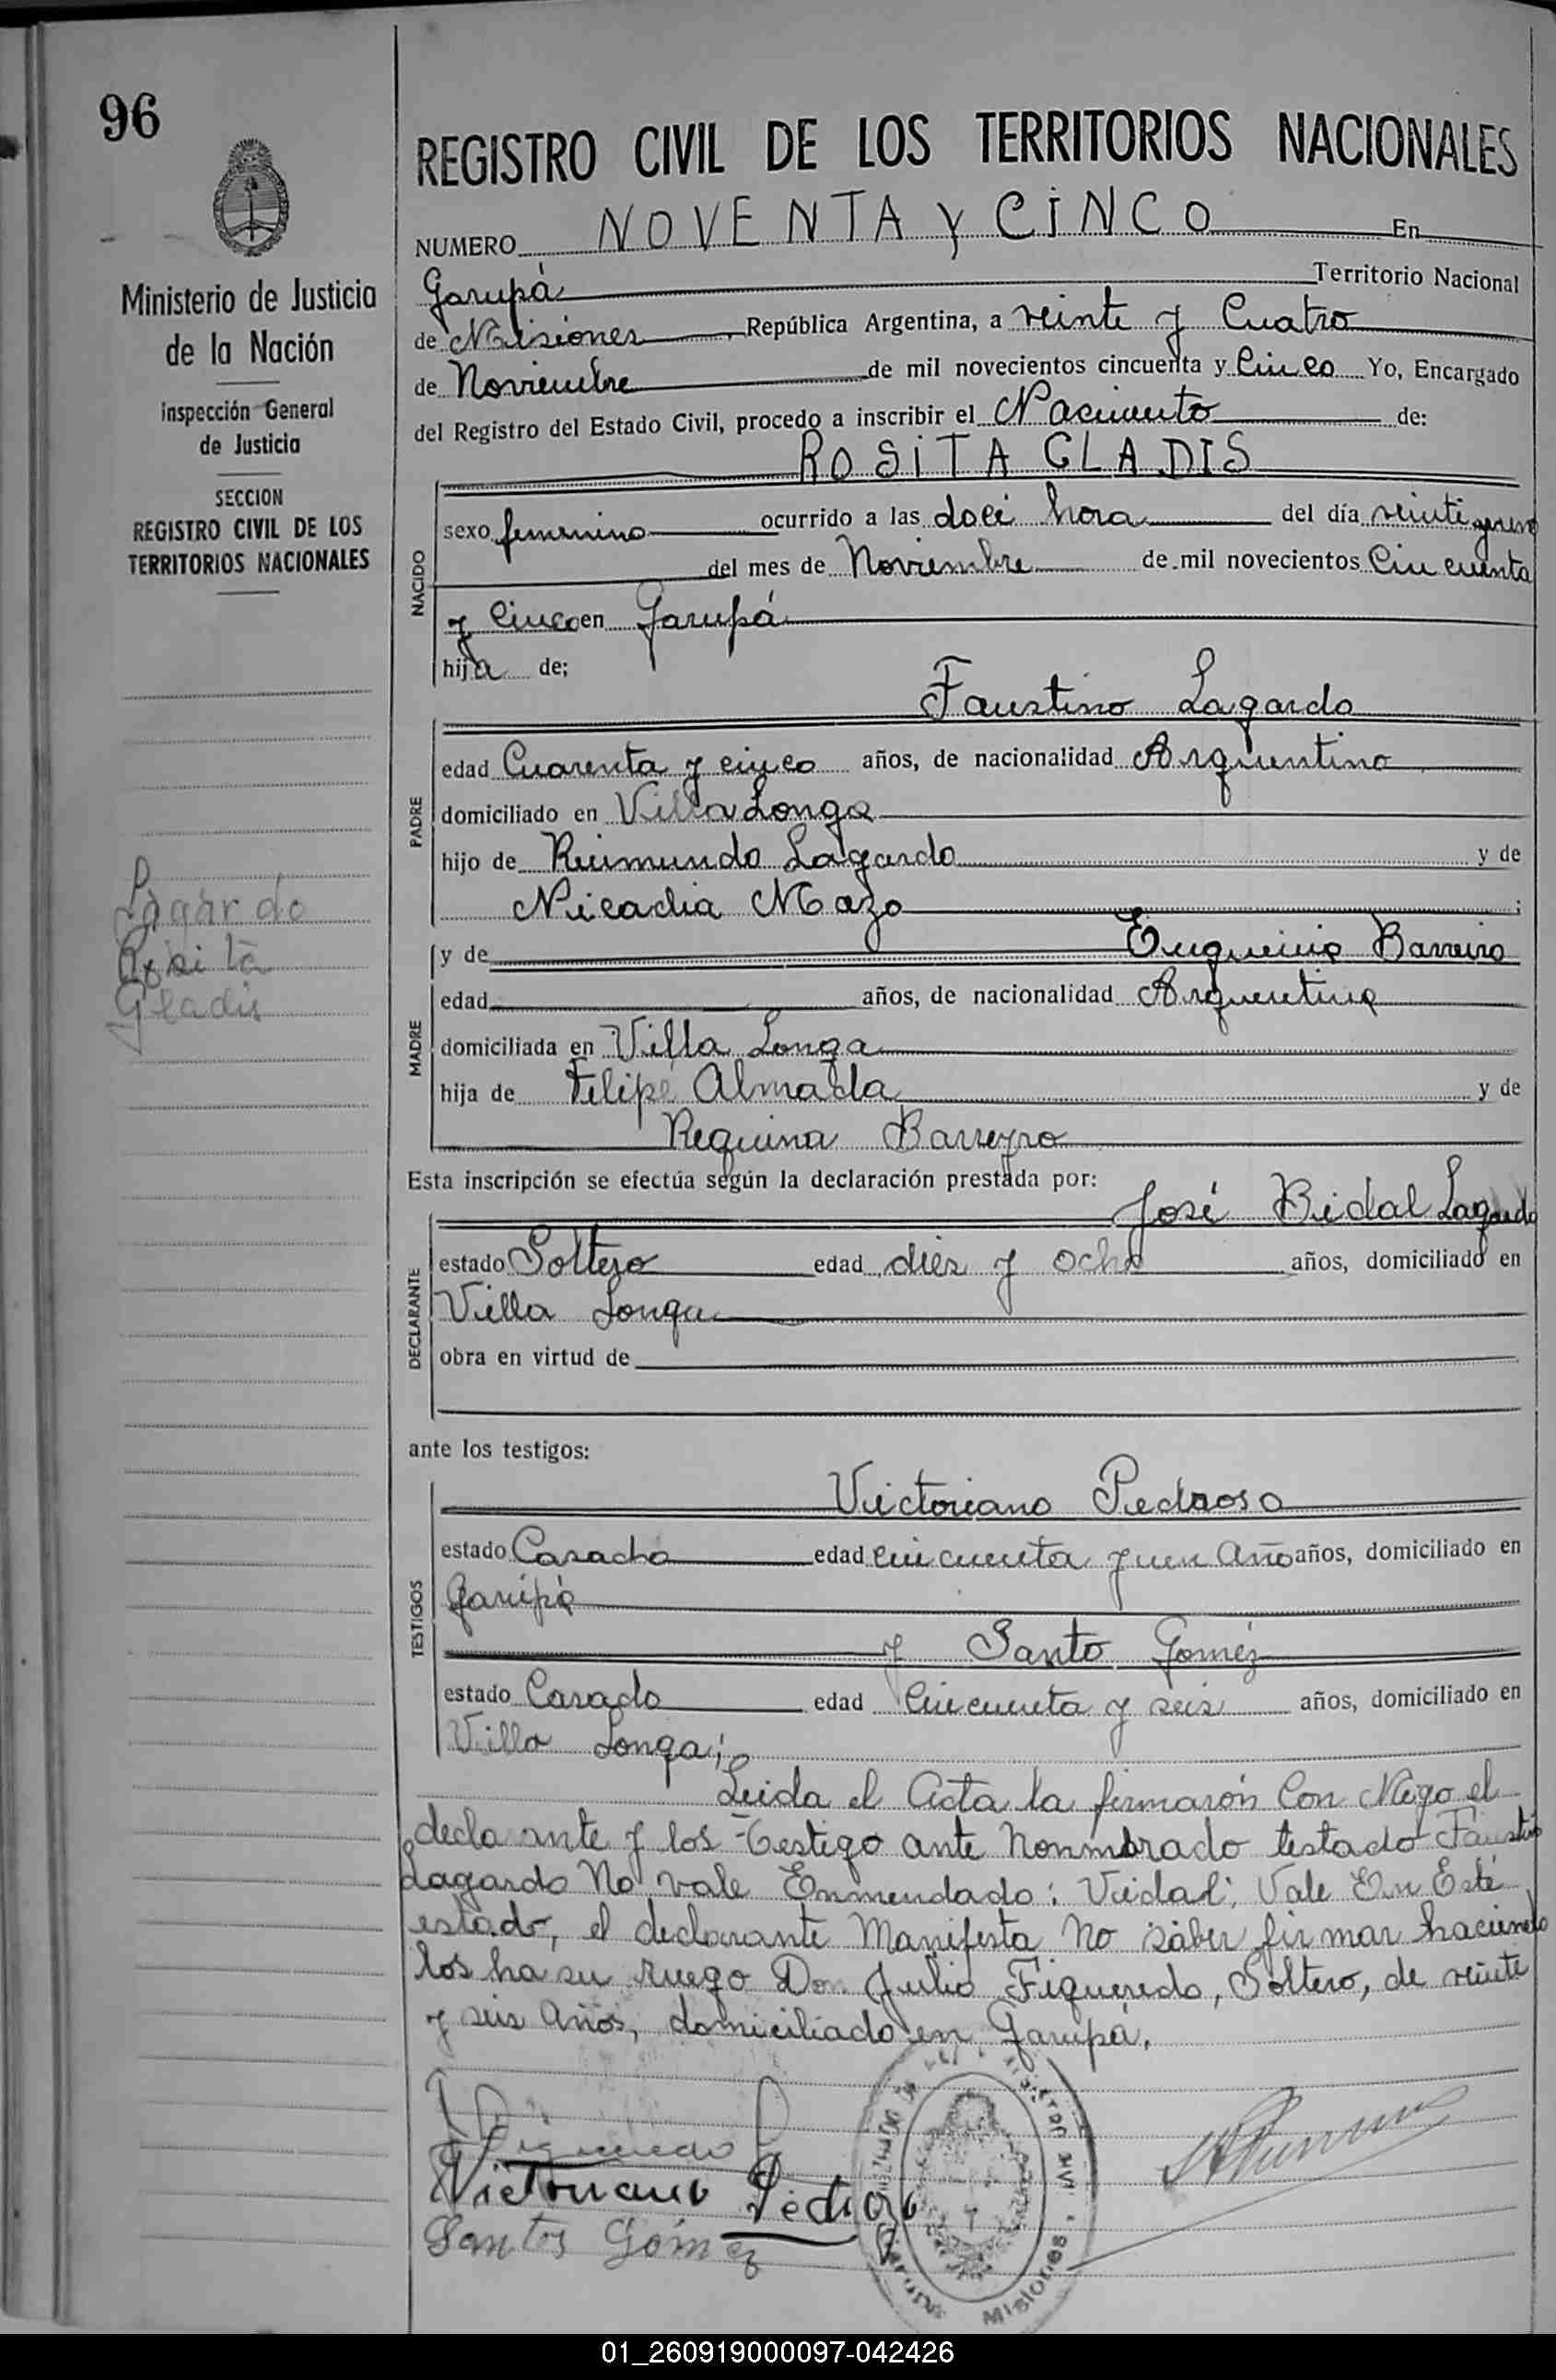 96
Ministerio de Justicia
de la Nación
Inspección General
de Justicia
SECCION
REGISTRO CIVIL DE LOS
TERRITORIOS NACIONALES
Lagardo
Rosita
Gladis
REGISTRO CIVIL DE LOS TERRITORIOS NACIONALES
NUMERO NOVENTA Y CINCO En
Garupá Territorio Nacional
de Misiones, República Argentina, a veinte y Cuatro
de Noviembre de mil novecientos cincuenta y Cinco Yo, Encargado
del Registro del Estado Civil, procedo a inscribir el Nacimiento de:
ROSITA GLADIS
NACIDO
sexo femenino ocurrido a las doce hora del día veinti
del mes de Noviembre de mil novecientos Cincuenta
y Cinco en Garupá
hija de;
PADRE
Faustino Lagardo
edad Cuarenta y cinco años, de nacionalidad Argentino
domiciliado en Villa Longa
hijo de Reimundo Lagardo y de
Nicadia Mazo;
MADRE
y de Eugenia Barreiro
edad años, de nacionalidad Argentina
domiciliada en Villa Longa
hija de Felipe Almada y de
Reguina Barreyro
Esta inscripción se efectúa según la declaración prestada por:
DECLARANTE
José Bidal Lagardo
estado Soltero edad dies y ocho años, domiciliado en
Villa Longa
obra en virtud de
ante los testigos:
TESTIGOS
Victoriano Pedroso
estado Casado edad cincuenta y un año años, domiciliado en
Garupá
y Santo Goméz
estado Casado edad Cincuenta y seis años, domiciliado en
Villa Longa;
Leida el Acta la firmarón Con Migo el
decla ante y los Testigo ante Nonmbrado testado Faustino
Lagardo No vale Enmendado: Vidal; Vale En Esté
estado, el declarante Manifesta No saber firmar haciendo
los ha su ruego Don Julio Figueredo, Soltero, de veinte
y seis Años, domiciliado en Garupá.
J Figueredo
Victoriano Pedroso
Santos Gómez
Misiones
01_260919000097-042426